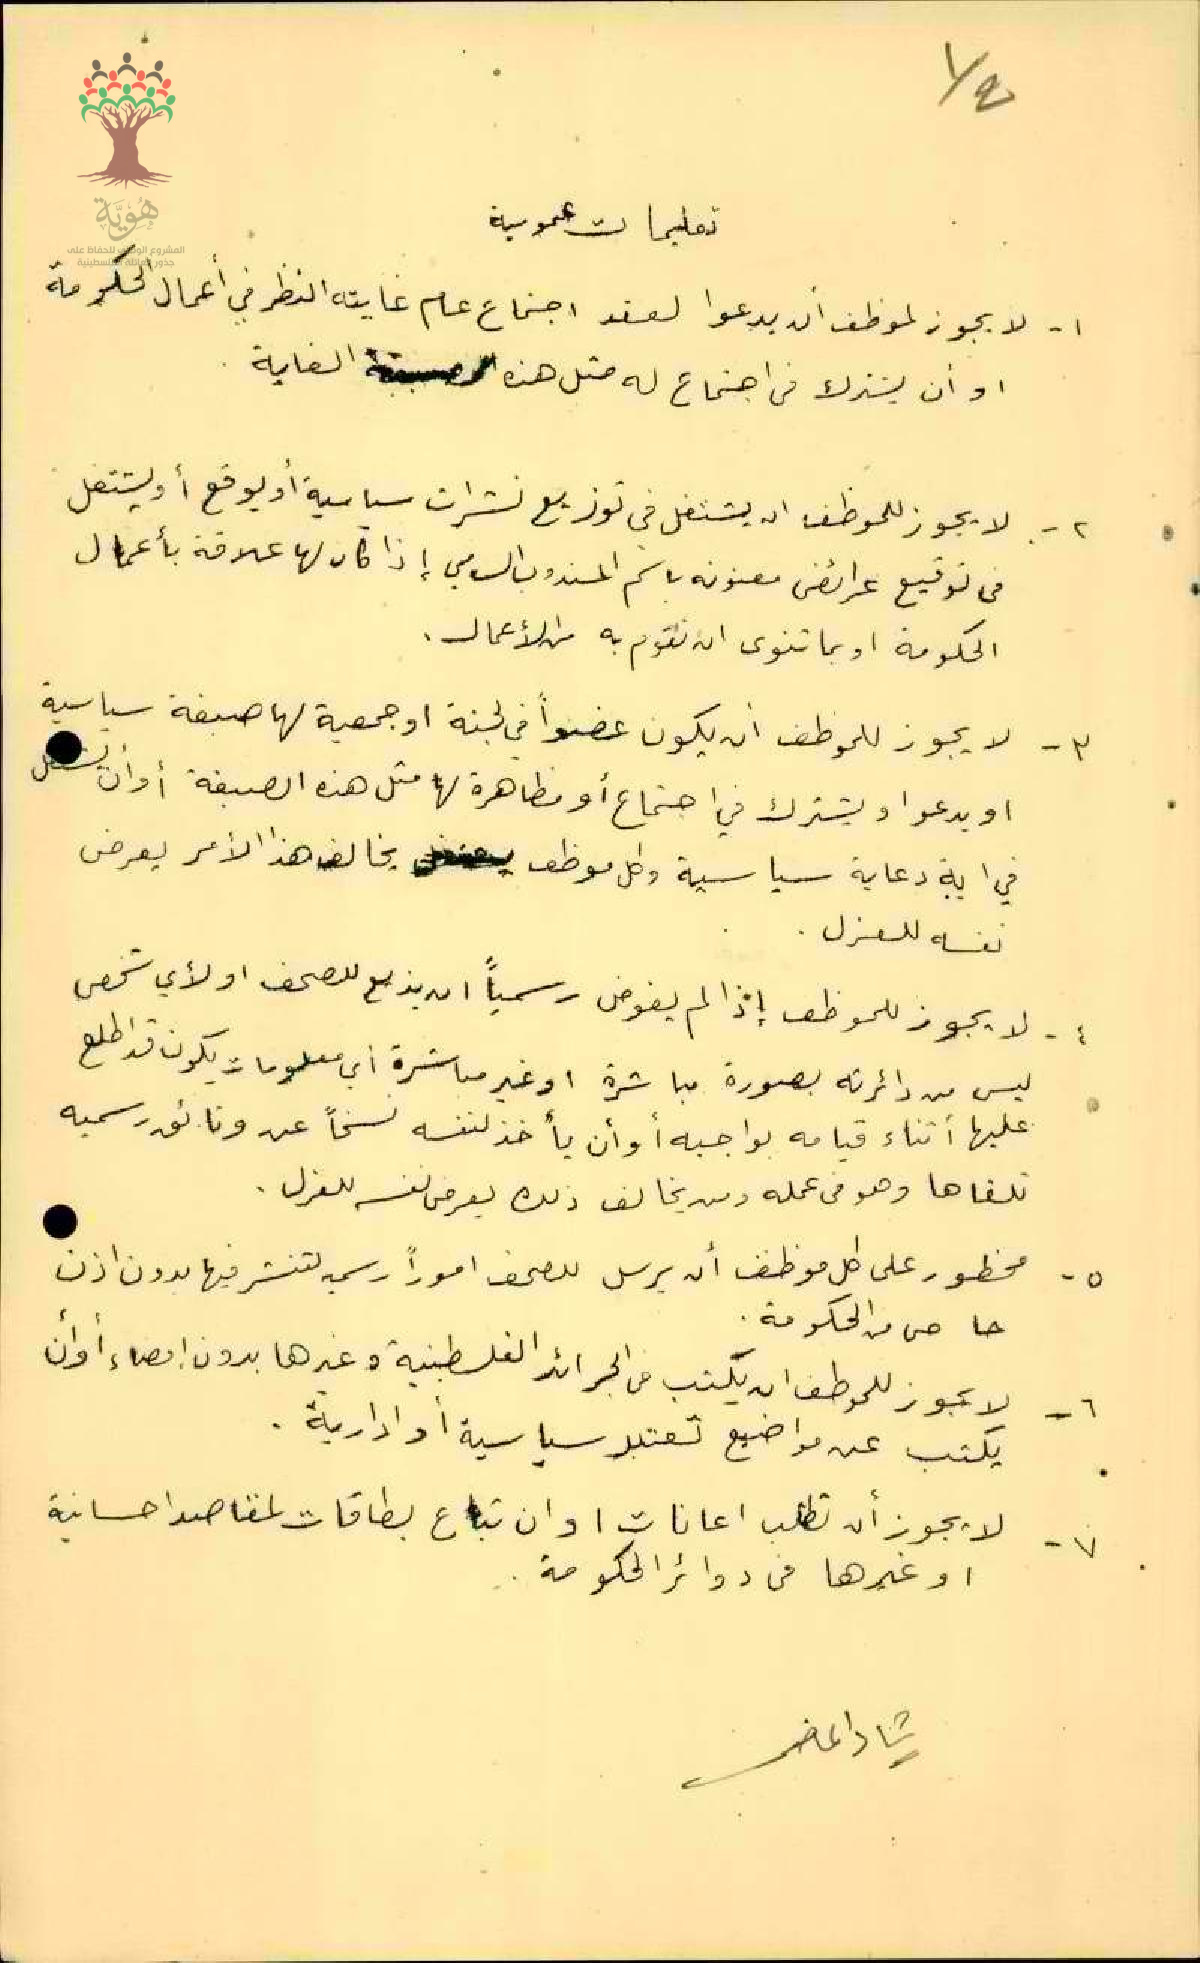 هُوِيَّة
المشروع الوطني للحفاظ على
جذور العائلة الفلسطينية
تعليمات عمومية
١- لا يجوز لموظف أن يدعوا لعقد اجتماع عام غايته النظر في أعمال الحكومة
او أن يشترك في اجتماع له مثل هذه الغاية .
٢- لا يجوز للموظف ان يشتغل في توزيع نشرات سياسية أو يوقع أو يشتغل
في توقيع عرائض معنونه باسم المندوب السامي إذا كان لها علاقة بأعمال
الحكومة او بما تنوى ان تقوم به من الأعمال .
٣- لا يجوز للموظف أن يكون عضواً في لجنة او جمعية لها صبغة سياسية
او يدعوا و يشترك في اجتماع أو مظاهرة لها مثل هذه الصبغة أو أن يشتغل
في اية دعاية سياسية وكل موظف يخالف هذا الأمر يعرض
نفسه للعزل .
٤- لا يجوز للموظف إذا لم يفوض رسمياً ان يذيع للصحف او لأي شخص
ليس من دائرته بصورة مباشرة او غير مباشرة أي معلومات يكون قد اطلع
عليها أثناء قيامه بواجبه أو أن يأخذ لنفسه نسخاً عن وثائق رسميه
تلقاها وهو في عمله ومن يخالف ذلك يعرض نفسه للعزل .
٥- محظور على كل موظف أن يرسل للصحف اموراً رسميه لتنشر فيها بدون اذن
خاص من الحكومة .
٦- لا يجوز للموظف ان يكتب في الجرائد الفلسطينية وغيرها بدون إمضاء أو أن
يكتب عن مواضيع تعتبر سياسية أو ادارية .
٧- لا يجوز أن تطلب اعانات او ان تباع بطاقات لمقاصد احسانية
او غيرها في دوائر الحكومة .